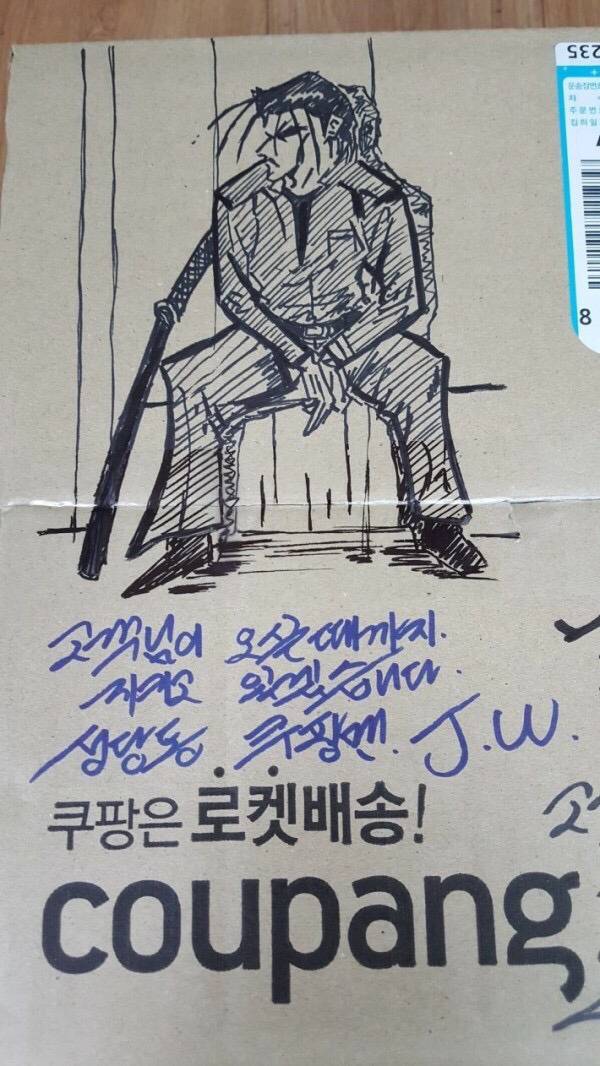 235
운송장번
주문번
집하일
8
고객님이 오실때까지.
지키고 있겠습니다.
성당동 쿠팡맨. J.W.
쿠팡은 로켓배송!
coupang